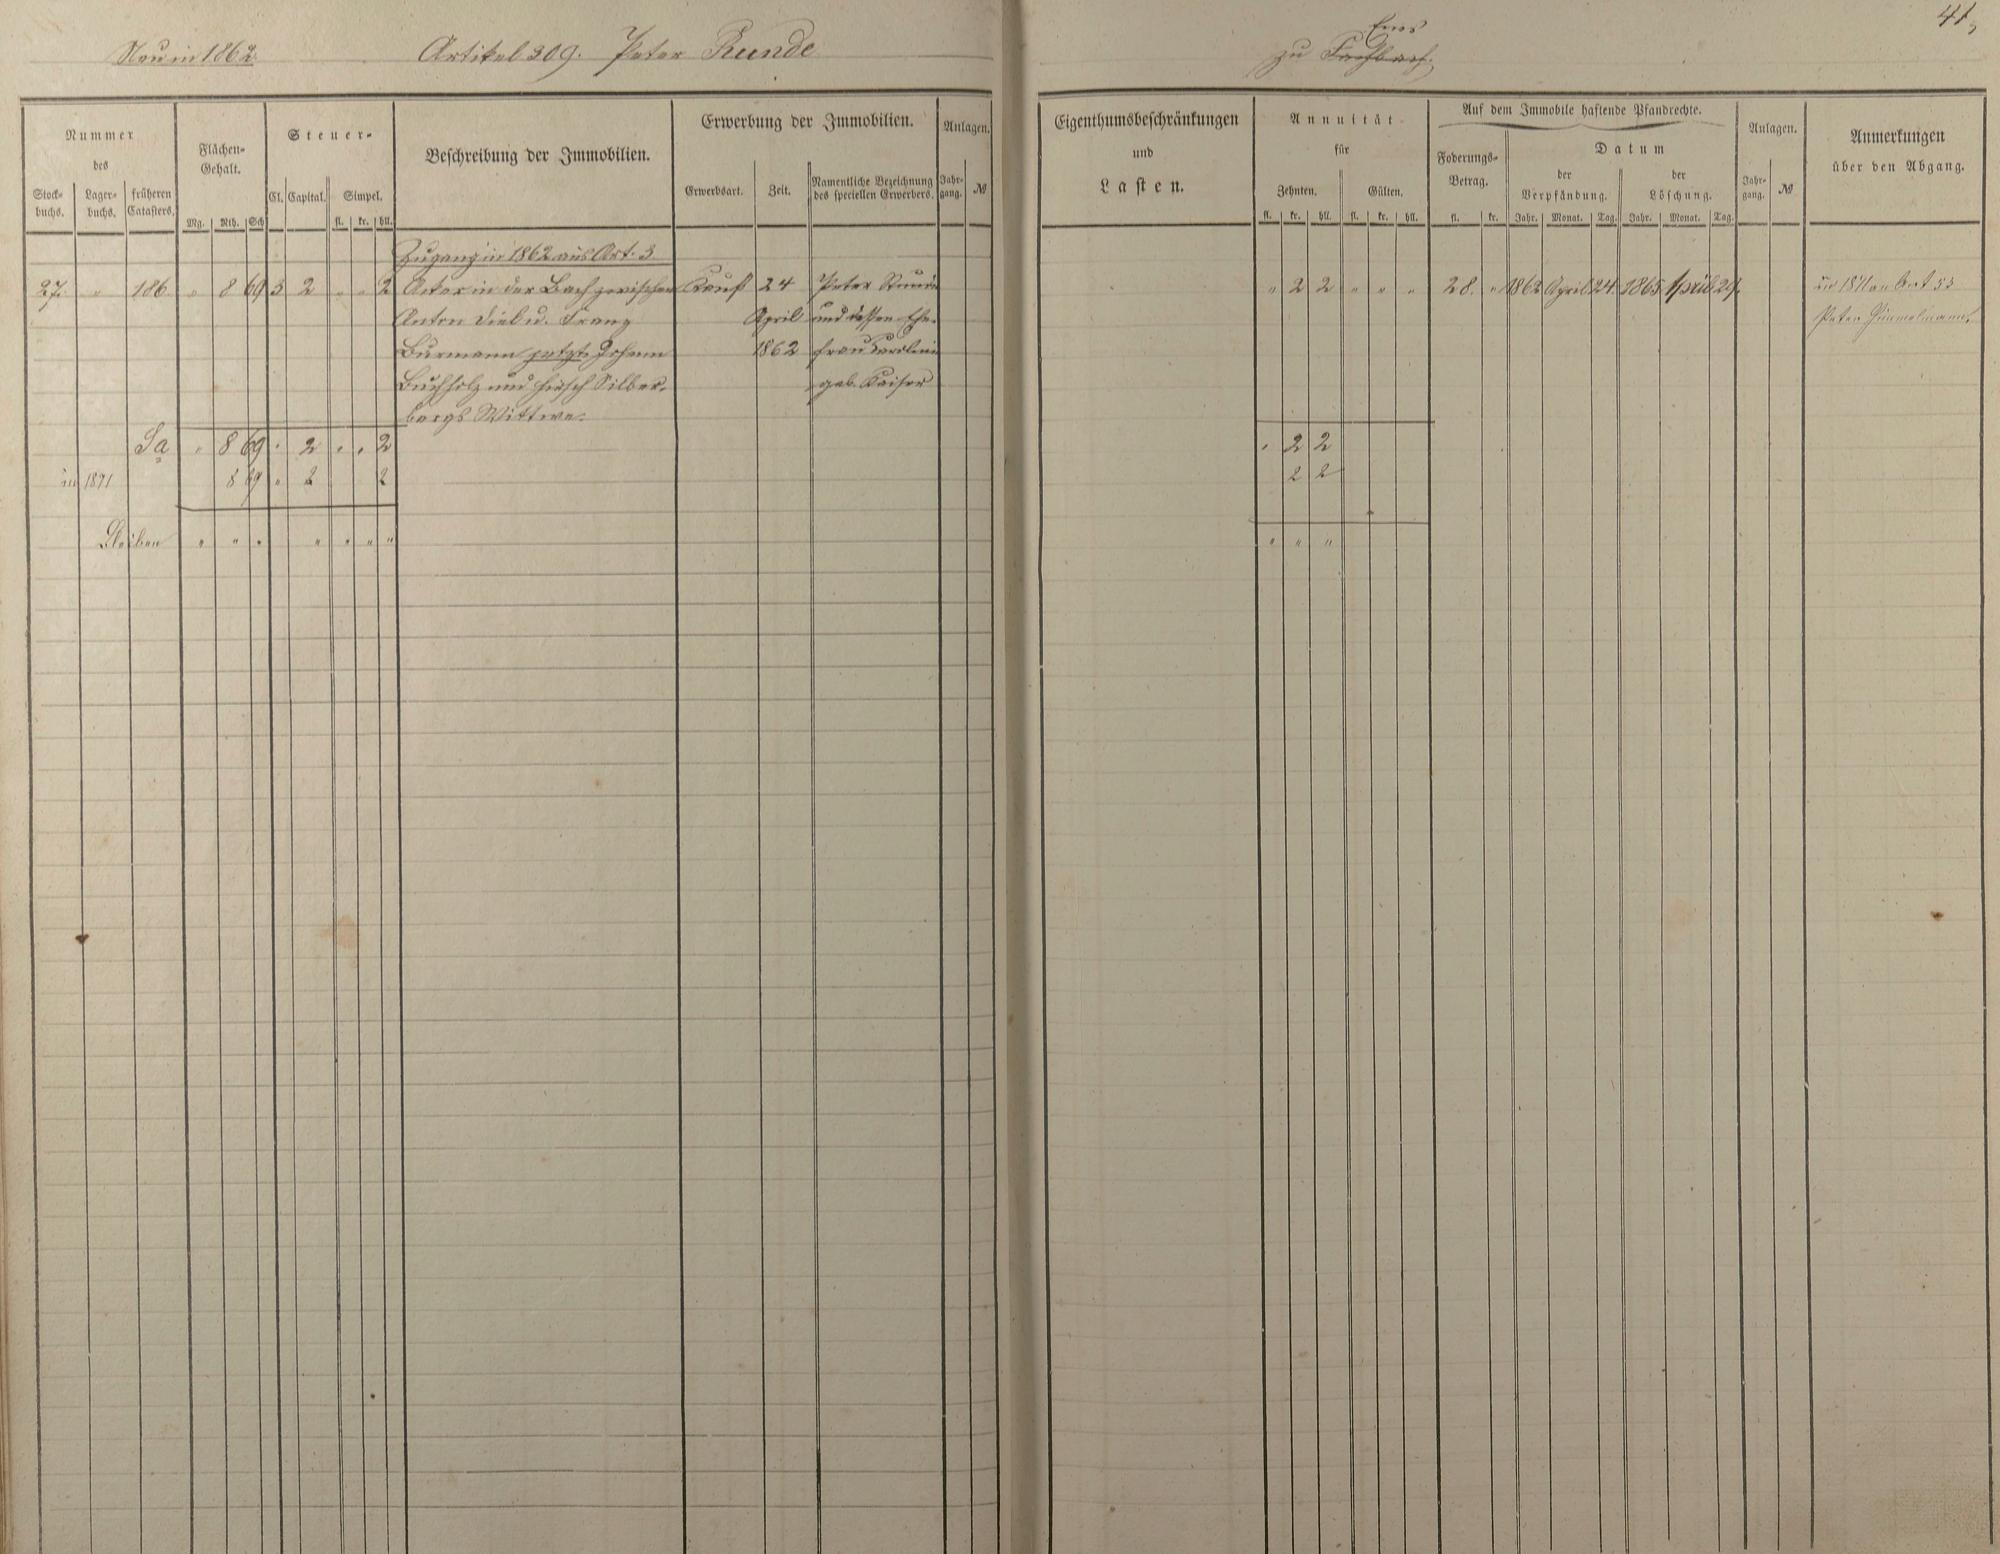 Neu in 1862.
Artikel 309. Peter Runde
Ems
zu Fachbach.
41,
Nummer
des
Stock-
buchs.
Lager-
buchs.
früheren
Catasters.
Flächen-
Gehalt.
Mg. Rth. Sch
Steuer-
Cl. Capital. Simpel.
fl. kr. hll.
Beschreibung der Immobilien.
Erwerbung der Immobilien.
Erwerbsart. Zeit.
Namentliche Bezeichnung
des speciellen Erwerbers.
Anlagen.
Jahr-
gang.
№
Eigenthumsbeschränkungen
und
Lasten.
Annuität
für
Zehnten. Gülten.
fl. kr. hll. fl. kr. hll.
Auf dem Immobile haftende Pfandrechte.
Foderungs-
Betrag.
fl. kr.
Datum
der
Verpfändung.
Jahr. Monat. Tag.
der
Löschung.
Jahr. Monat. Tag.
Anlagen.
Jahr-
gang.
№
Anmerkungen
über den Abgang.
Zugang in 1862 aus Art. 3
27. " 186 " 8 69 3 2 " " 2 Acker in der Bach zwischen Kauf 24 Peter Runde " 2 2 " " " 28. " 1862 April 24. 1865 April 29. in 1871 an Art 53
Anton Diel u. Franz April und dessen Ehe- Peter Himmelmann.
Burmann jetzt Johann 1862 frau Carolina
Buchholz und Hirsch Silber- geb. Kaiser
bergs Wittwe.
Sa " 8 69 " 2 " " 2 " 2 2
in 1871 8 69 " 2 2 2 2
Bleiben " " " " " " " " " "